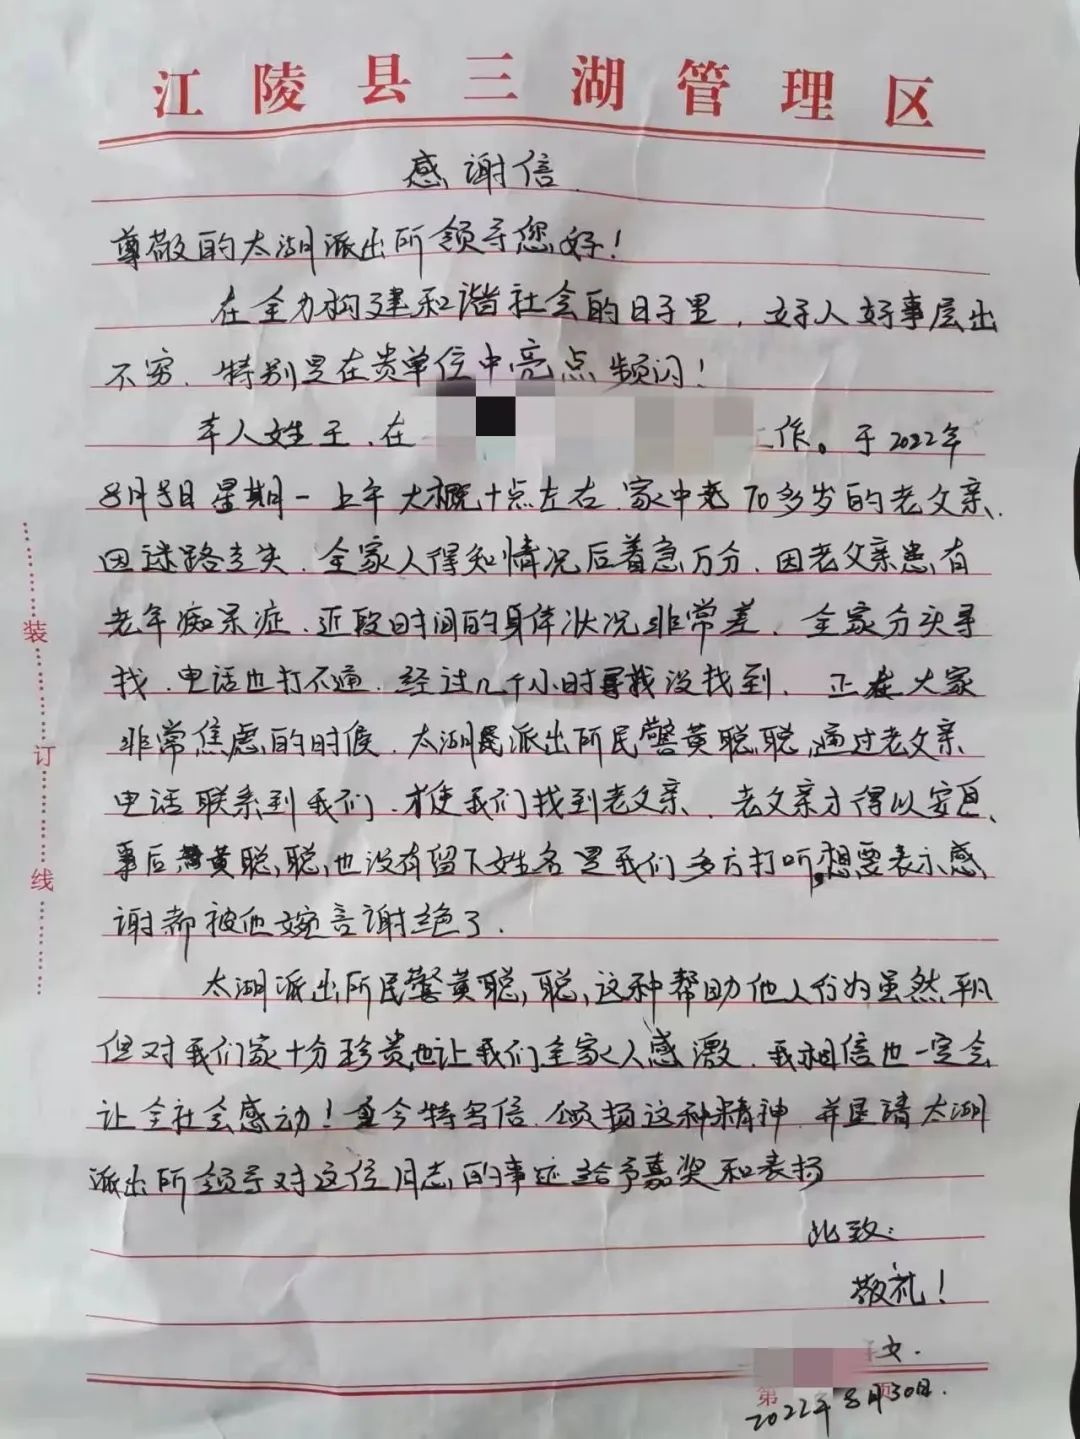 江陵县三湖管理区
感谢信
尊敬的太湖派出所领导您好!
在全力构建和谐社会的日子里,好人好事层出
不穷,特别是在贵单位中亮点频闪!
本人姓王,在 工作。于2022年
8月8日星期一上午大概十点左右,家中老70多岁的老父亲,
因迷路走失,全家人得知情况后着急万分,因老父亲患有
老年痴呆症,近段时间的身体状况非常差,全家分头寻
找,电话也打不通,经过几个小时寻找没找到,正在大家
非常焦虑的时候,太湖派出所民警黄聪聪,通过老父亲
电话联系到我们,才使我们找到老父亲,老父亲才得以安息、
事后黄聪,聪,也没有留下姓名是我们多方打听,想要表示感
谢都被他婉言谢绝了.
太湖派出所民警黄聪,聪,这种帮助他人行为虽然平凡
但对我们家十分珍贵也让我们全家人感激,我相信也一定会
让全社会感动!至今特写信,颂扬这种精神,并垦请太湖
派出所领导对这位同志的事迹给予嘉奖和表扬
此致:
敬礼!
女.
第 页
2022年8月30日.
装
订
线